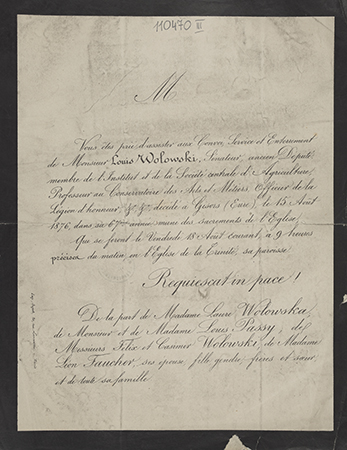 110470 III
M
Vous êtes prié d'assister aux Convoi, Service et Enterrement
de Monsieur Louis Wolowski, Sénateur, ancien Député
membre de l'Institut et de la Société centrale d'Agriculture,
Professeur au Conservatoire des Arts et Métiers, Officier de la
Légion d'honneur, &c. &c. décédé à Gisors (Eure), le 15 Août
1876, dans sa 67ème année, muni des Sacrements de l'Eglise.
Qui se feront le Vendredi 18 Août courant, à 9 heures
précises du matin en l'Eglise de la Trinité, sa paroisse.
Requiescat in pace !
De la part de Madame Laure Wolowska,
de Monsieur et de Madame Louis Passy, de
Messieurs Félix et Casimir Wolowski, de Madame
Léon Faucher, ses épouse, fille, gendre, frères et sœur
et de toute sa famille